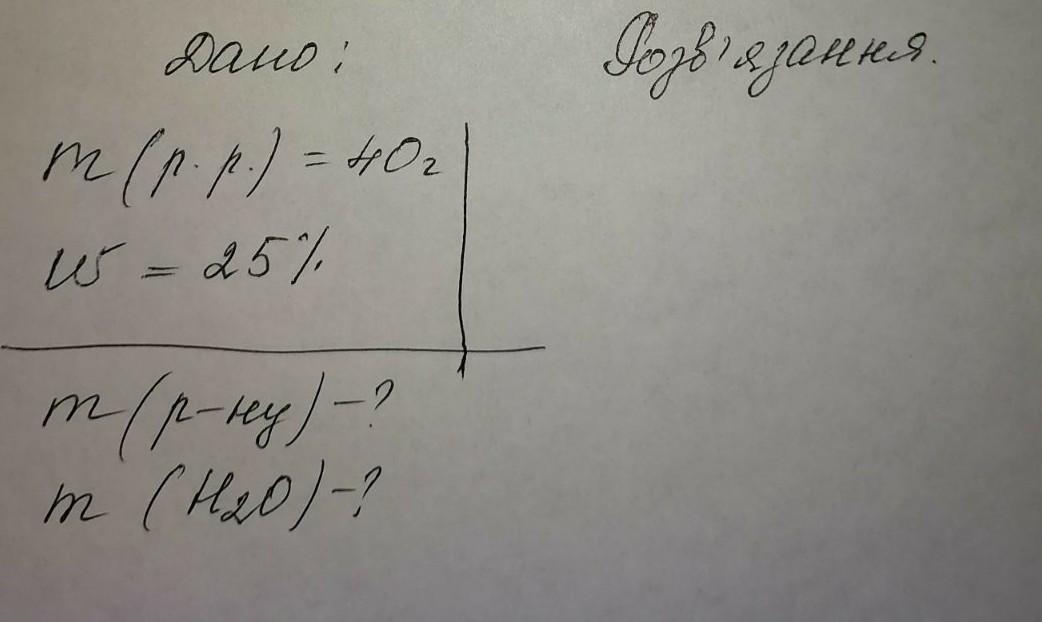 Дано:
Розв'язання.
m (р.р.) = 40г
w = 25%
m (р-ну) - ?
m (H2O) - ?